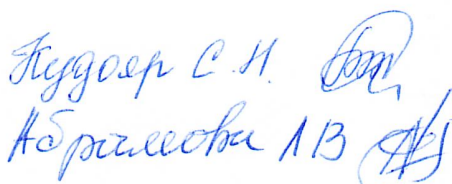 Кудояр С.Н.
Абрамова Л В